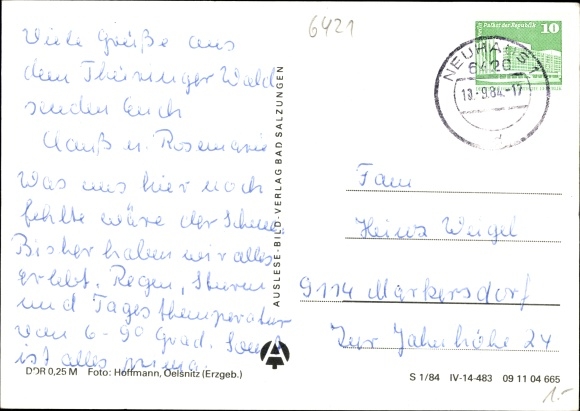 6421
Palast der Republik 10
NEUHAUS
6420
10.-9.84.-17
DDR
Viele Grüße aus
dem Thüringer Wald
senden Euch
u. Rosemarie
Was uns hier noch
fehlte wäre der Schnee.
Bisher haben wir alles
erlebt. Regen, Sturm
und Tagesthemperatur
von 6-9° Grad. Sonst
ist alles prima.
AUSLESE-BILD-VERLAG BAD SALZUNGEN
Fam
Heinz Weigel
9114 Markersdorf
Zur Jahnhöhe 24
A
DDR 0,25 M Foto: Hoffmann, Oelsnitz (Erzgeb.)
S 1/84 IV-14-483 09 11 04 665
1.-